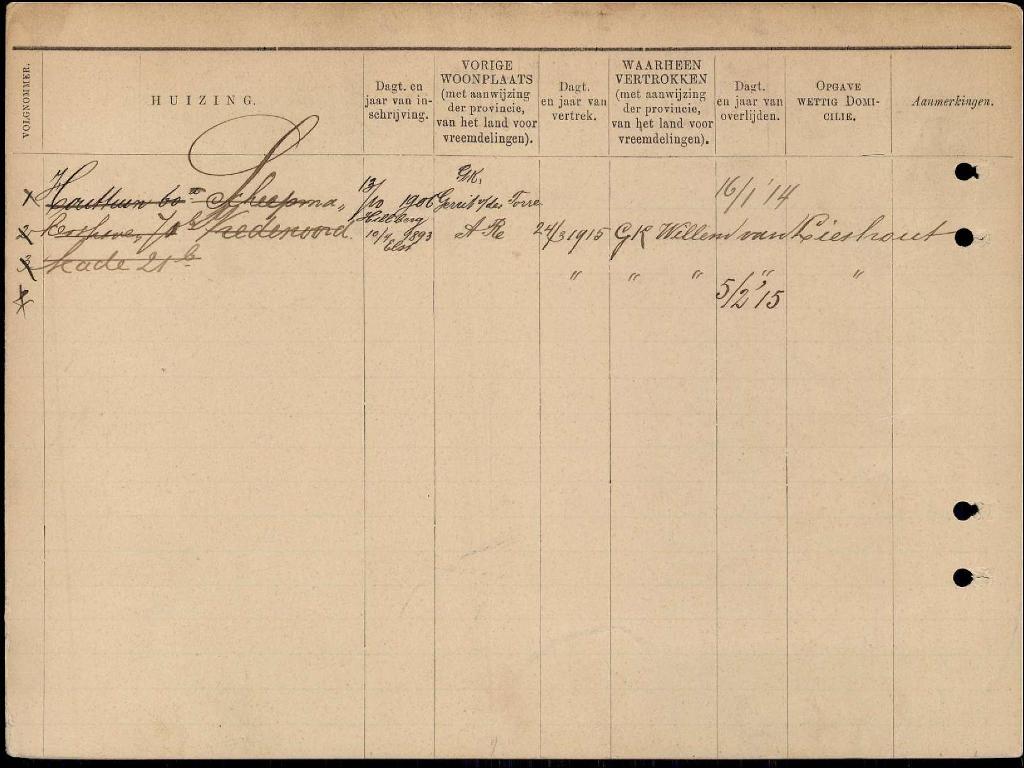 VOLGNOMMER.
HUIZING.
Dagt. en
jaar van in-
schrijving.
VORIGE
WOONPLAATS
(met aanwijzing
der provincie,
van het land voor
vreemdelingen).
Dagt.
en jaar van
vertrek.
WAARHEEN
VERTROKKEN
(met aanwijzing
der provincie,
van het land voor
vreemdelingen).
Dagt.
en jaar van
overlijden.
OPGAVE
WETTIG DOMI-
CILIE.
Aanmerkingen.
1 Houttuin 60 Scheepma,, 13/10 1906 GK, Gerrit v/der Torre 16/1 '14
2 Vredenoord 10/4 9893 Elst A Re 24/3 1915 GK Willem van Lieshout
3 kade 21 b " " " " "
5/2 '15